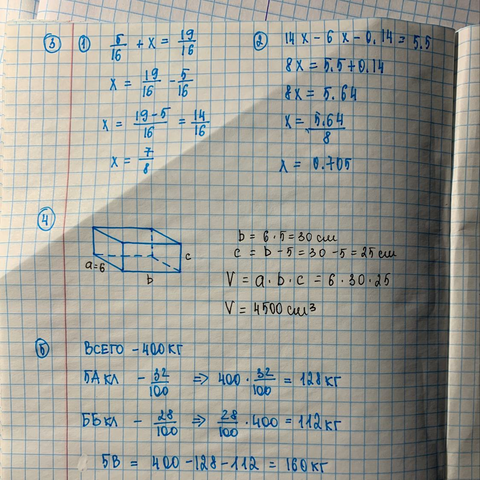 ③ ① 5/16 + x = 19/16
x = 19/16 - 5/16
x = (19-5)/16 = 14/16
x = 7/8
② 14x - 6x - 0.14 = 5.5
8x = 5.5 + 0.14
8x = 5.64
x = 5.64/8
x = 0.705
④
a=6
b
c
b = 6 · 5 = 30 см
c = b - 5 = 30 - 5 = 25 см
V = a · b · c = 6 · 30 · 25
V = 4500 см³
⑤ ВСЕГО - 400 КГ
5А кл - 32/100 ⇒ 400 · 32/100 = 128 кг
5Б кл - 28/100 ⇒ 28/100 · 400 = 112 кг
5В = 400 - 128 - 112 = 160 кг